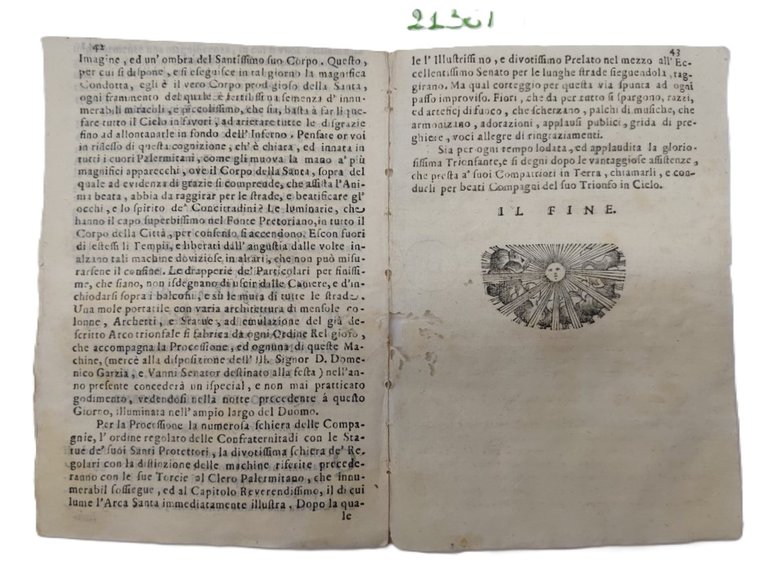 42
Imagine, ed un'ombra del Santissimo suo Corpo. Questo,
per cui si dispone, e si eseguisce in tal giorno la magnifica
Condotta, egli è il vero Corpo prodigioso della Santa,
ogni frammento del quale è fertilissima semenza d' innu-
merabili miracoli, e piccolissimo, che sia, basta à far li que-
fare tutto il Cielo in favori, ad atterrare tutte le disgrazie
fino ad allontanarle in fondo dell' Inferno. Pensate or voi
in riflesso di questa cognizione, ch' è chiara, ed innata in
tutti i cuori Palermitani, come gli muova la mano a' più
magnifici apparecchi, ove il Corpo della Santa, sopra del
quale ad evidenza di grazie si comprende, che assista l'Ani
ma beata, abbia da raggirar per le strade, e beatificare gl'
occhi, e lo spirito de' Concittadini? Le luminarie, che
hanno il capo superbissimo nel Fonte Pretoriano, in tutto il
Corpo della Città, per consenso si accendono. Escon fuori
di essessi li Tempii, e liberati dall' angustia dalle volte in-
alzano tali machine doviziose in altari, che non può misu-
rarsene il confine. Le drapperie de' Particolari per finissi-
me, che siano, non isdegnano di uscir dalle Camere, e d'in-
chiodarsi sopra i balconi, e sù le mura di tutte le strade.
Una mole portatile con varia architettura di mensole co-
lonne, Archetti, e Statue, ad emulazione del già de-
scritto Arco trionfale si fabrica da ogni Ordine Religioso,
che accompagna la Processione, ed ognuna di queste Ma-
chine, (mercè alla disposizione dell' Ill. Signor D. Dome-
nico Garzia, e Vanni Senator destinato alla festa) nell'an-
no presente concederà un ispecial, e non mai pratticato
godimento, vedendosi nella notte precedente à questo
Giorno, illuminata nell'ampio largo del Duomo.
Per la Processione la numerosa schiera delle Compa-
gnie, l' ordine regolato delle Confraternitadi con le Sta-
tue de' suoi Santi Protettori, la divotissima schiera de' Re-
golari con la distinzione delle machine riferite precede-
ranno con le sue Torcie al Clero Palermitano, che innu-
merabil sossiegue, ed al Capitolo Reverendissimo, il di cui
lume l'Arca Santa immediatamente illustra, Dopo la qua-
le
21301
43
le l' Illustrissimo, e divotissimo Prelato nel mezzo all' Ec-
cellentissimo Senato per le lunghe strade sieguendola, rag-
girano. Ma qual corteggio per questa via spunta ad ogni
passo improviso. Fiori, che da per tutto si spargono, razzi,
ed arteficj di fuoco, che scherzano, palchi di musiche, che
armonizano, adorazioni, applausi publici, grida di pre-
ghiere, voci allegre di ringraziamenti.
Sia per ogni tempo lodata, ed applaudita la glorio-
sissima Trionfante, e si degni dopo le vantaggiose assistenze,
che presta a' suoi Compatrioti in Terra, chiamarli, e con-
durli per beati Compagni del suo Trionfo in Cielo.
IL FINE.